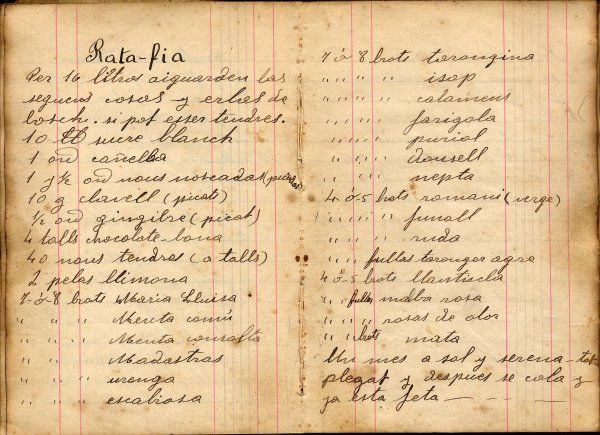 Rata-fia
Per 16 litros aiguarden las
seguens cosas y erbas de
bosch. si pot esser tendres.
10 ℔ sucre blanch
1 ond cañella
1 y ½ ond nous noscadas (picadas)
10 g clavill (picats)
½ ond gingibre (picat)
4 talls chocolate bona
40 nous tendres (a talls)
2 pelas llimona
7-ó-8 brots Maria Lluisa
" " " " Menta comú
" " " " Menta consolta
" " " " Madastras
" " " " urenga
" " " " escabiosa
7 ó 8 brots tarongina
" " " " isop
" " " " calament
" " " " farigola
" " " " puriol
" " " " donsell
" " " " nepta
4 ó-5 brots romani (verge)
" " " " funoll
" " " " ruda
" " " fullas taronger agre
4 ó-5 brots llantiscla
" " fullas malba rosa
" " " " rosas de olor
" " brots mata
Un mes a sol y serena-tot
plegat y despues se cola y
ja esta feta — — — —